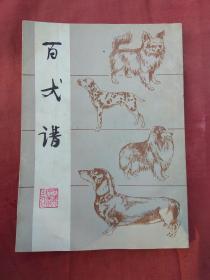 百犬谱